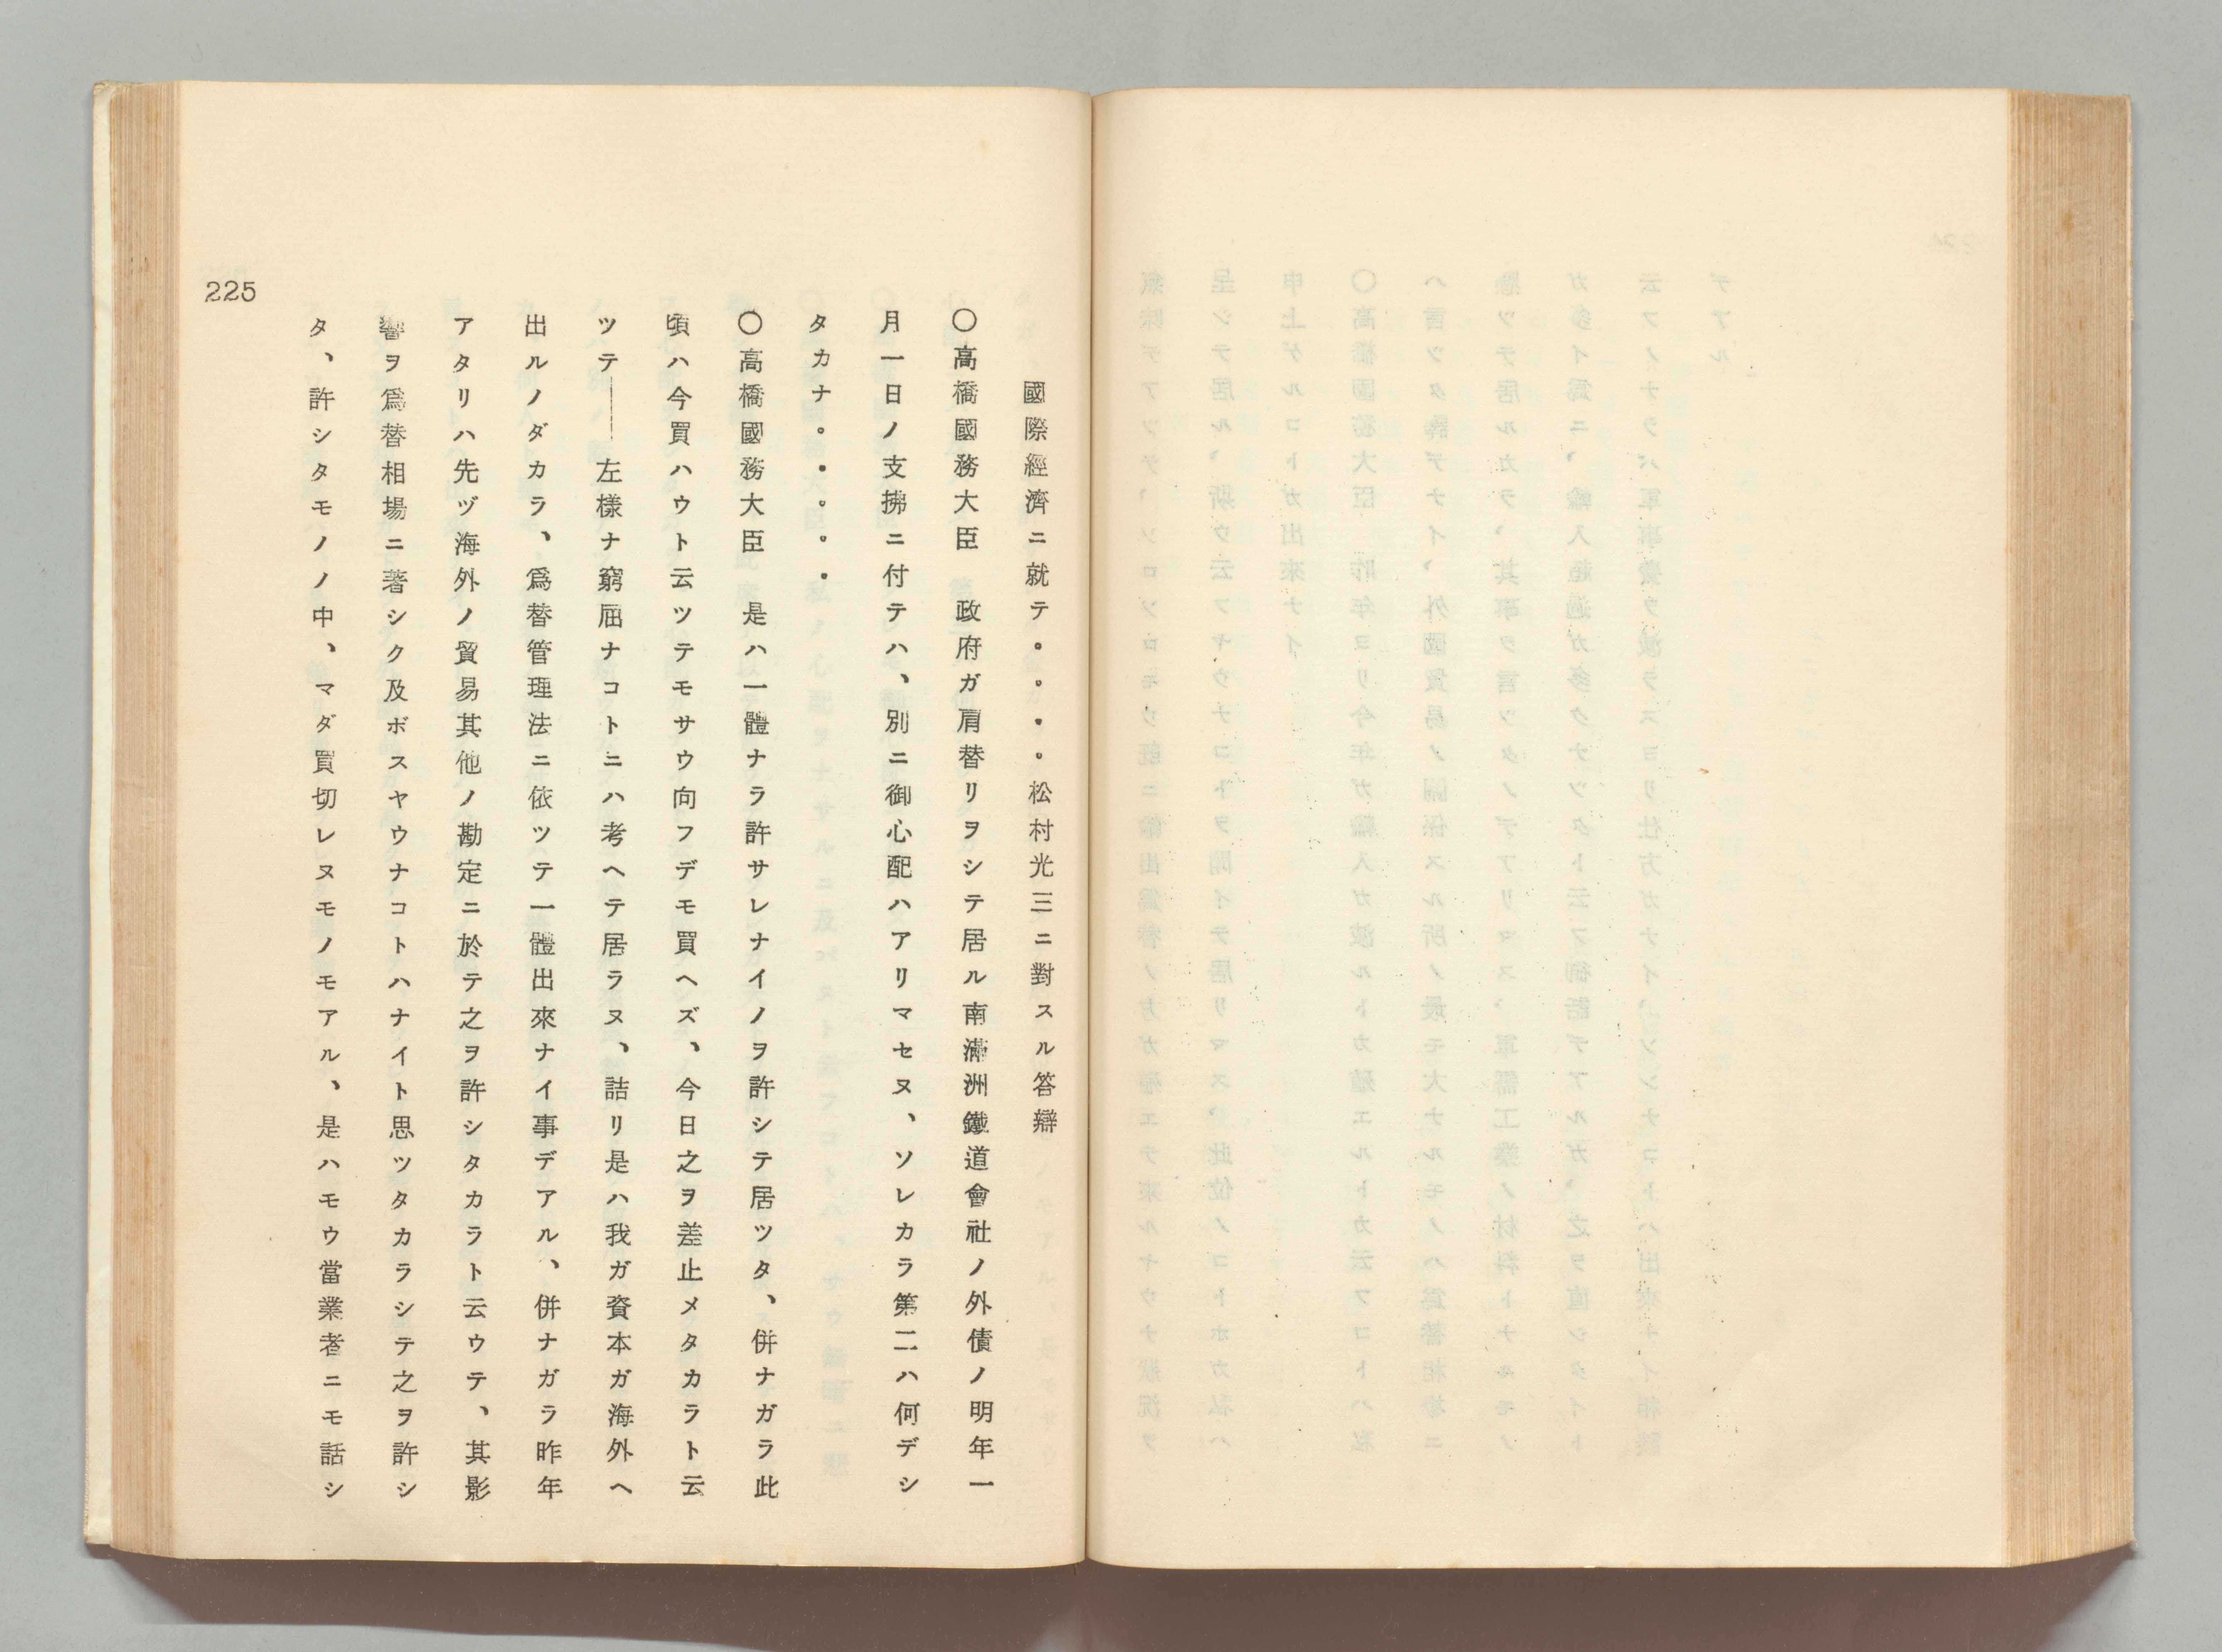 國際經濟ニ就テ。。・。松村光三ニ對スル答辯
〇高橋國務大臣　政府ガ肩替リヲシテ居ル南滿洲鐵道會社ノ外債ノ明年一
月一日ノ支拂ニ付テハ、別ニ御心配ハアリマセヌ、ソレカラ第二ハ何デシ
タカナ。・。。・
〇高橋國務大臣　是ハ一體ナラ許サレナイノヲ許シテ居ツタ、併ナガラ此
頃ハ今買ハウト云ツテモサウ向フデモ買ヘズ、今日之ヲ差止メタカラト云
ツテ――左樣ナ窮屈ナコトニハ考ヘテ居ラヌ、詰リ是ハ我ガ資本ガ海外ヘ
出ルノダカラ、爲替管理法ニ依ツテ一體出來ナイ事デアル、併ナガラ昨年
アタリハ先ヅ海外ノ貿易其他ノ勘定ニ於テ之ヲ許シタカラト云ウテ、其影
響ヲ爲替相場ニ著シク及ボスヤウナコトハナイト思ツタカラシテ之ヲ許シ
タ、許シタモノノ中、マダ買切レヌモノモアル、是ハモウ當業者ニモ話シ
225